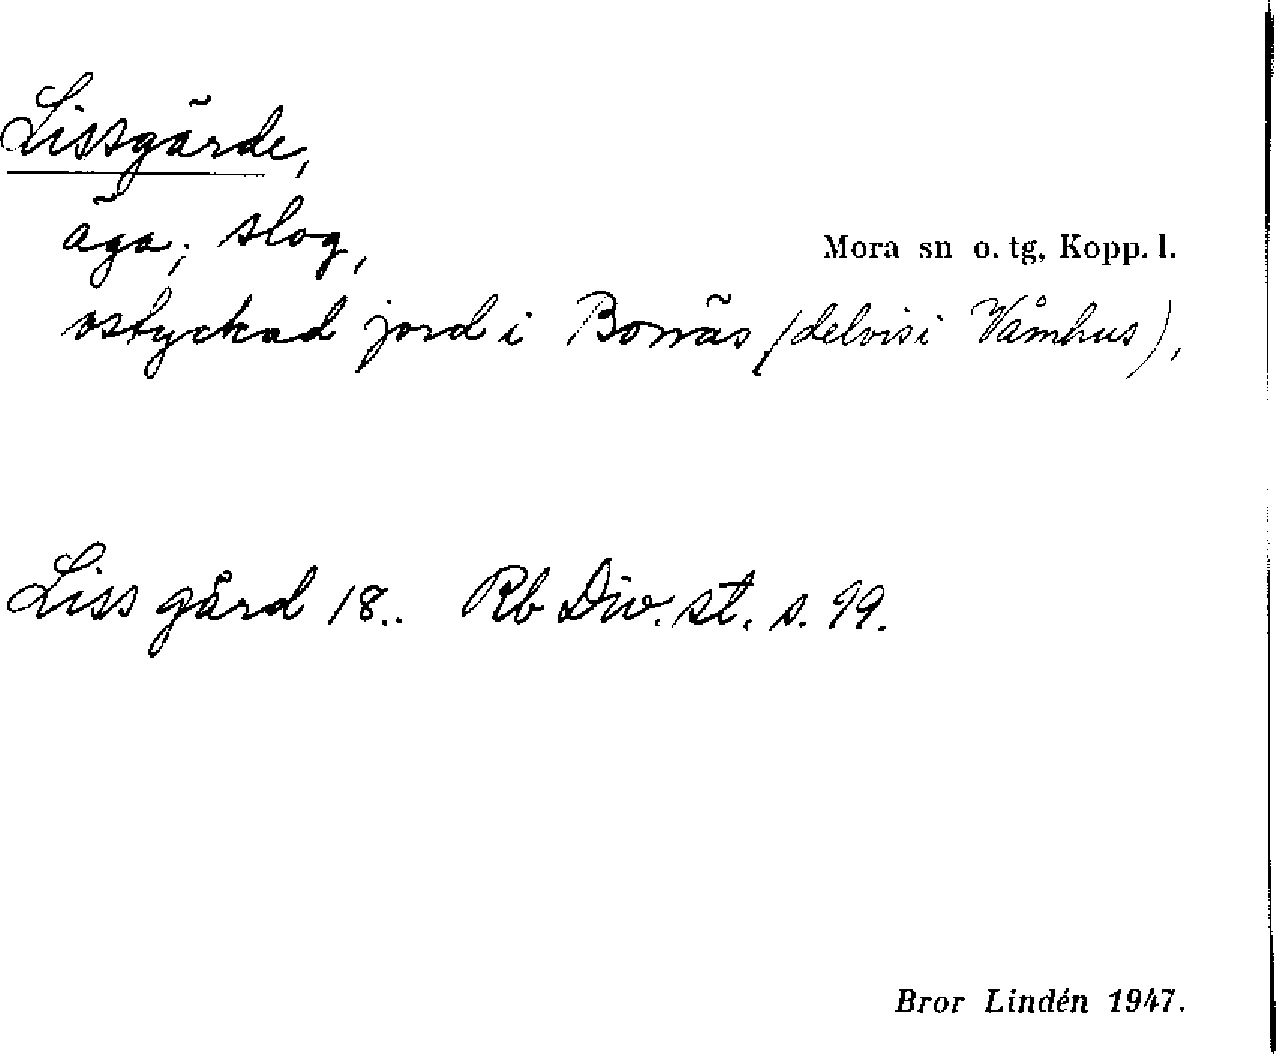 Lissgärde,
äga; slog,
Mora sn o. tg, Kopp. l.
ostyckad jord i Bonäs (delvis i Våmhus),
Liss gård 18.. Rb Div. st. s. 99.
Bror Lindén 1947.